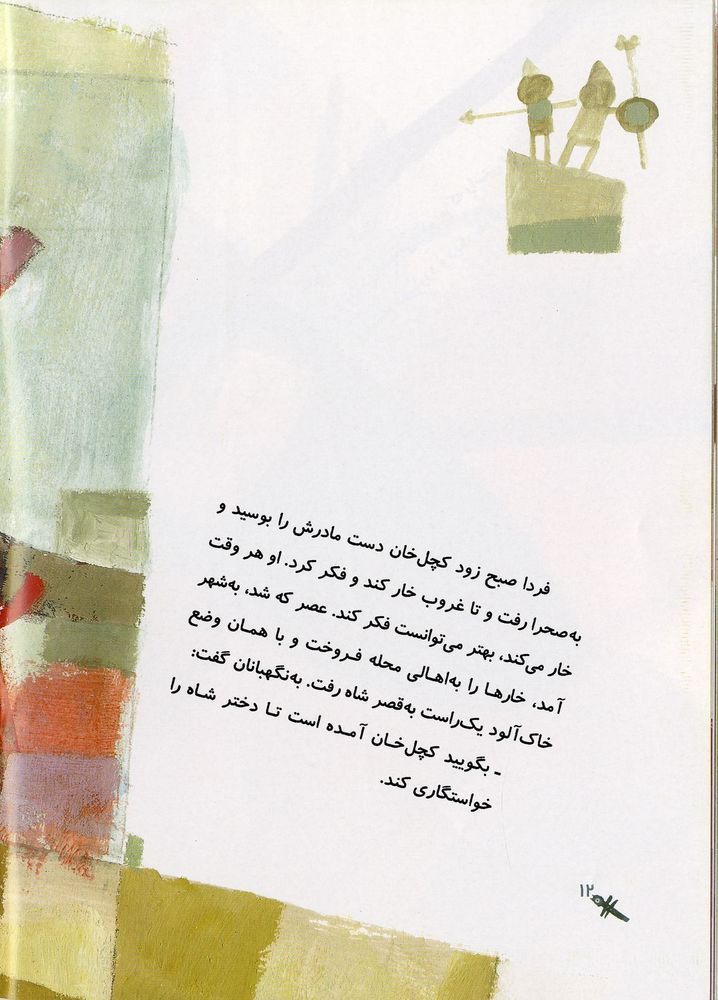 فردا صبح زود کچل‌خان دست مادرش را بوسید و
به‌صحرا رفت و تا غروب خار کند و فکر کرد. او هر وقت
خار می‌کند، بهتر می‌توانست فکر کند. عصر که شد، به‌شهر
آمد، خارهـا را به‌اهـالی محله فـروخت و با همـان وضع
خاک‌آلود یک‌راست به‌قصر شاه رفت. به‌نگهبانان گفت:
ـ بگویید کچل‌خـان آمـده است تـا دختر شـاه را
خواستگاری کند.
۱۲